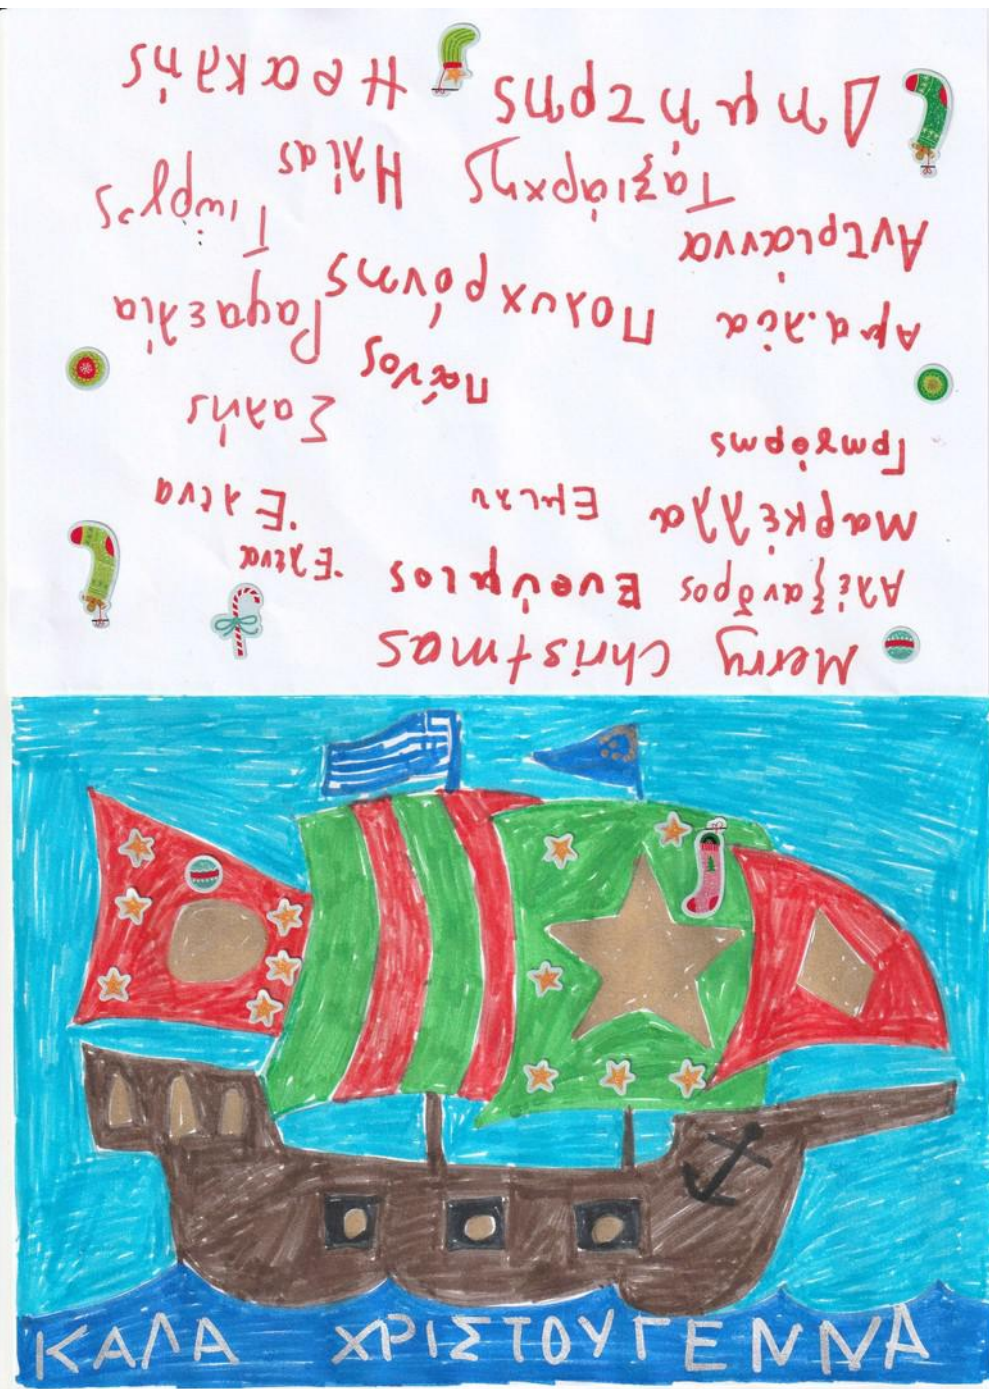 Merry Christmas
Αλέξανδρος Ευθύμιος Έλενα
Μαρκέλλα Εμιλυ Έλενα
Γρηγόρης
Σαλής
Πάνος
Αμαλία Πολυχρόνης Ραφαελία
Αντριάννα
Ταξιάρχης Ηλίας Γιώργος
Δημήτρης Ηρακλής
ΚΑΛΑ ΧΡΙΣΤΟΥΓΕΝΝΑ